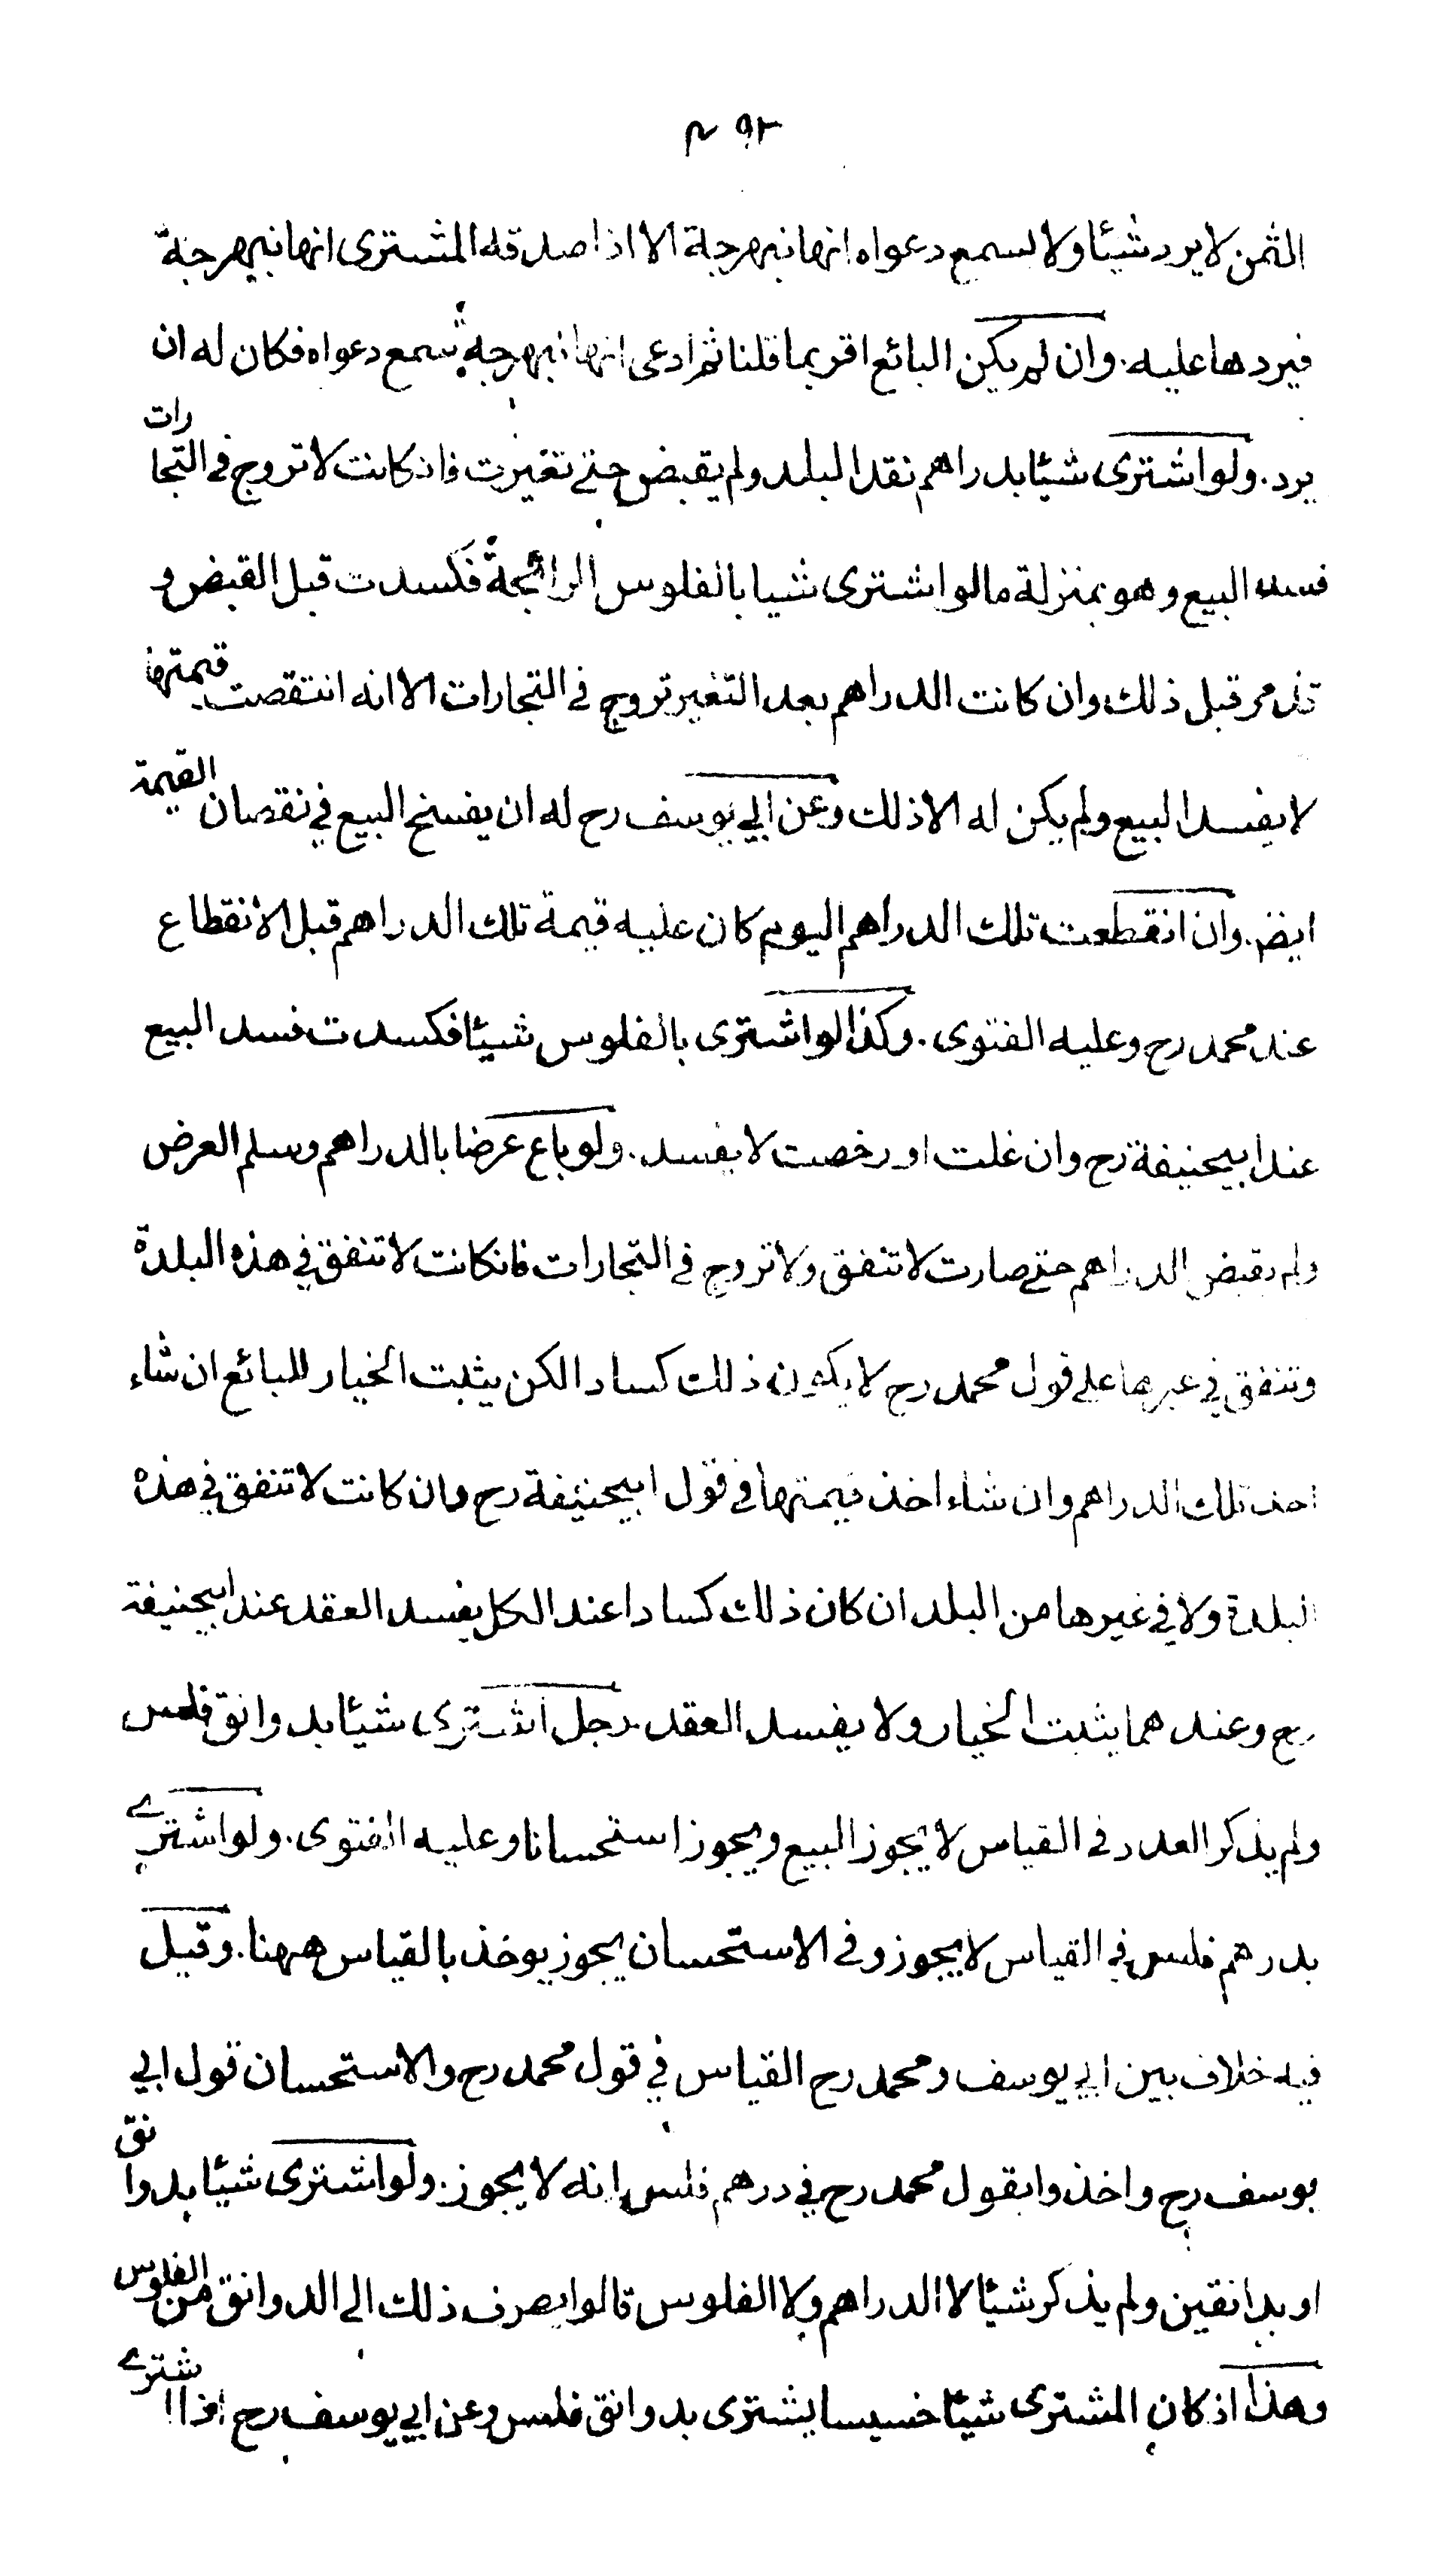 ٤٩٢
الثمن لا يرد شيئا ولا يسمع دعواه انها نبهرجة الا اذا صدقه المشترى انها نبهرجة
فيردها عليه. وان لم يكن البائع اقر بما قلنا ثم ادعى انها نبهرجة يسمع دعواه فكان له ان
يرد. ولو اشترى شيئا بدراهم نقد البلد ولم يقبض حتى تغيرت فان كانت لا تروج فى التجارات
فسد البيع وهو بمنزلة ما لو اشترى شيا بالفلوس الرائجة فكسدت قبل القبض و
قد مر قبل ذلك وان كانت الدراهم بعد التغير تروج فى التجارات الا انه انتقصت قيمتها
لا يفسد البيع ولم يكن له الا ذلك وعن ابي يوسف رح له ان يفسخ البيع في نقصان القيمة
ايضا. وان انقطعت تلك الدراهم اليوم كان عليه قيمة تلك الدراهم قبل الانقطاع
عند محمد رح وعليه الفتوى. وكذا لو اشترى بالفلوس شيئا فكسدت فسد البيع
عند ابيحنيفة رح وان غلت او رخصت لا يفسد. ولو باع عرضا بالدراهم وسلم العرض
ولم يقبض الدراهم حتى صارت لا تنفق ولا تروج فى التجارات فانكانت لا تنفق في هذه البلدة
وتنفق في غيرها على قول محمد رح لا يكون ذلك كسادا لكن يثبت الخيار للبائع ان شاء
اخذ تلك الدراهم وان شاء اخذ قيمتها فى قول ابيحنيفة رح وان كانت لا تنفق في هذه
البلدة ولا في غيرها من البلد ان كان ذلك كسادا عند الكل يفسد العقد عند ابيحنيفة
رح وعندهما يثبت الخيار ولا يفسد العقد. رجل اشترى شيئا بدوانق فلس
ولم يذكر العدد فى القياس لا يجوز البيع ويجوز استحسانا وعليه الفتوى. ولو اشترے
بدرهم فلس فى القياس لا يجوز وفى الاستحسان يجوز يوخذ بالقياس ههنا. وقيل
فيه خلاف بين ابي يوسف ومحمد رح القياس في قول محمد رح والاستحسان قول ابي
يوسف رح واخذوا بقول محمد رح في درهم فلس انه لا يجوز. ولو اشترى شيئا بدوانق
او بدانقين ولم يذكر شيئا لا الدراهم ولا الفلوس قالوا يصرف ذلك الى الدوانق من الفلوس
وهذا اذ كان المشترى شيئا خسيسا يشترى بدوانق فلس وعن ابي يوسف رح اذا اشترے